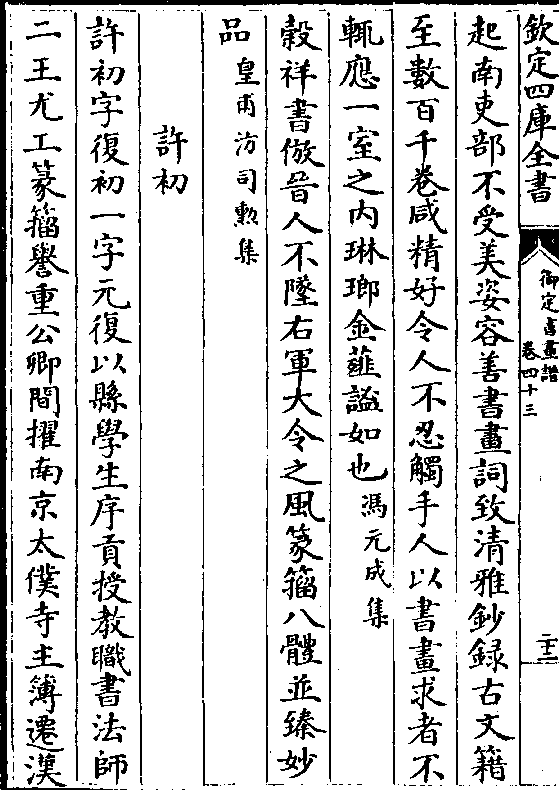 欽定四庫全書
御定書畫譜
卷四十三
二十二
起南吏部不受美姿容善書畫詞致清雅鈔録古文籍
至數百千卷咸精好令人不忍觸手人以書畫求者不
輒應一室之内琳瑯金薤謐如也馮元成集
榖祥書倣晉人不墜右軍大令之風篆籀八體並臻妙
品皇甫汸司勲集
許初
許初字復初一字元復以縣學生序貢授教職書法師
二王尤工篆籀譽重公卿間擢南京太僕寺主簿遷漢